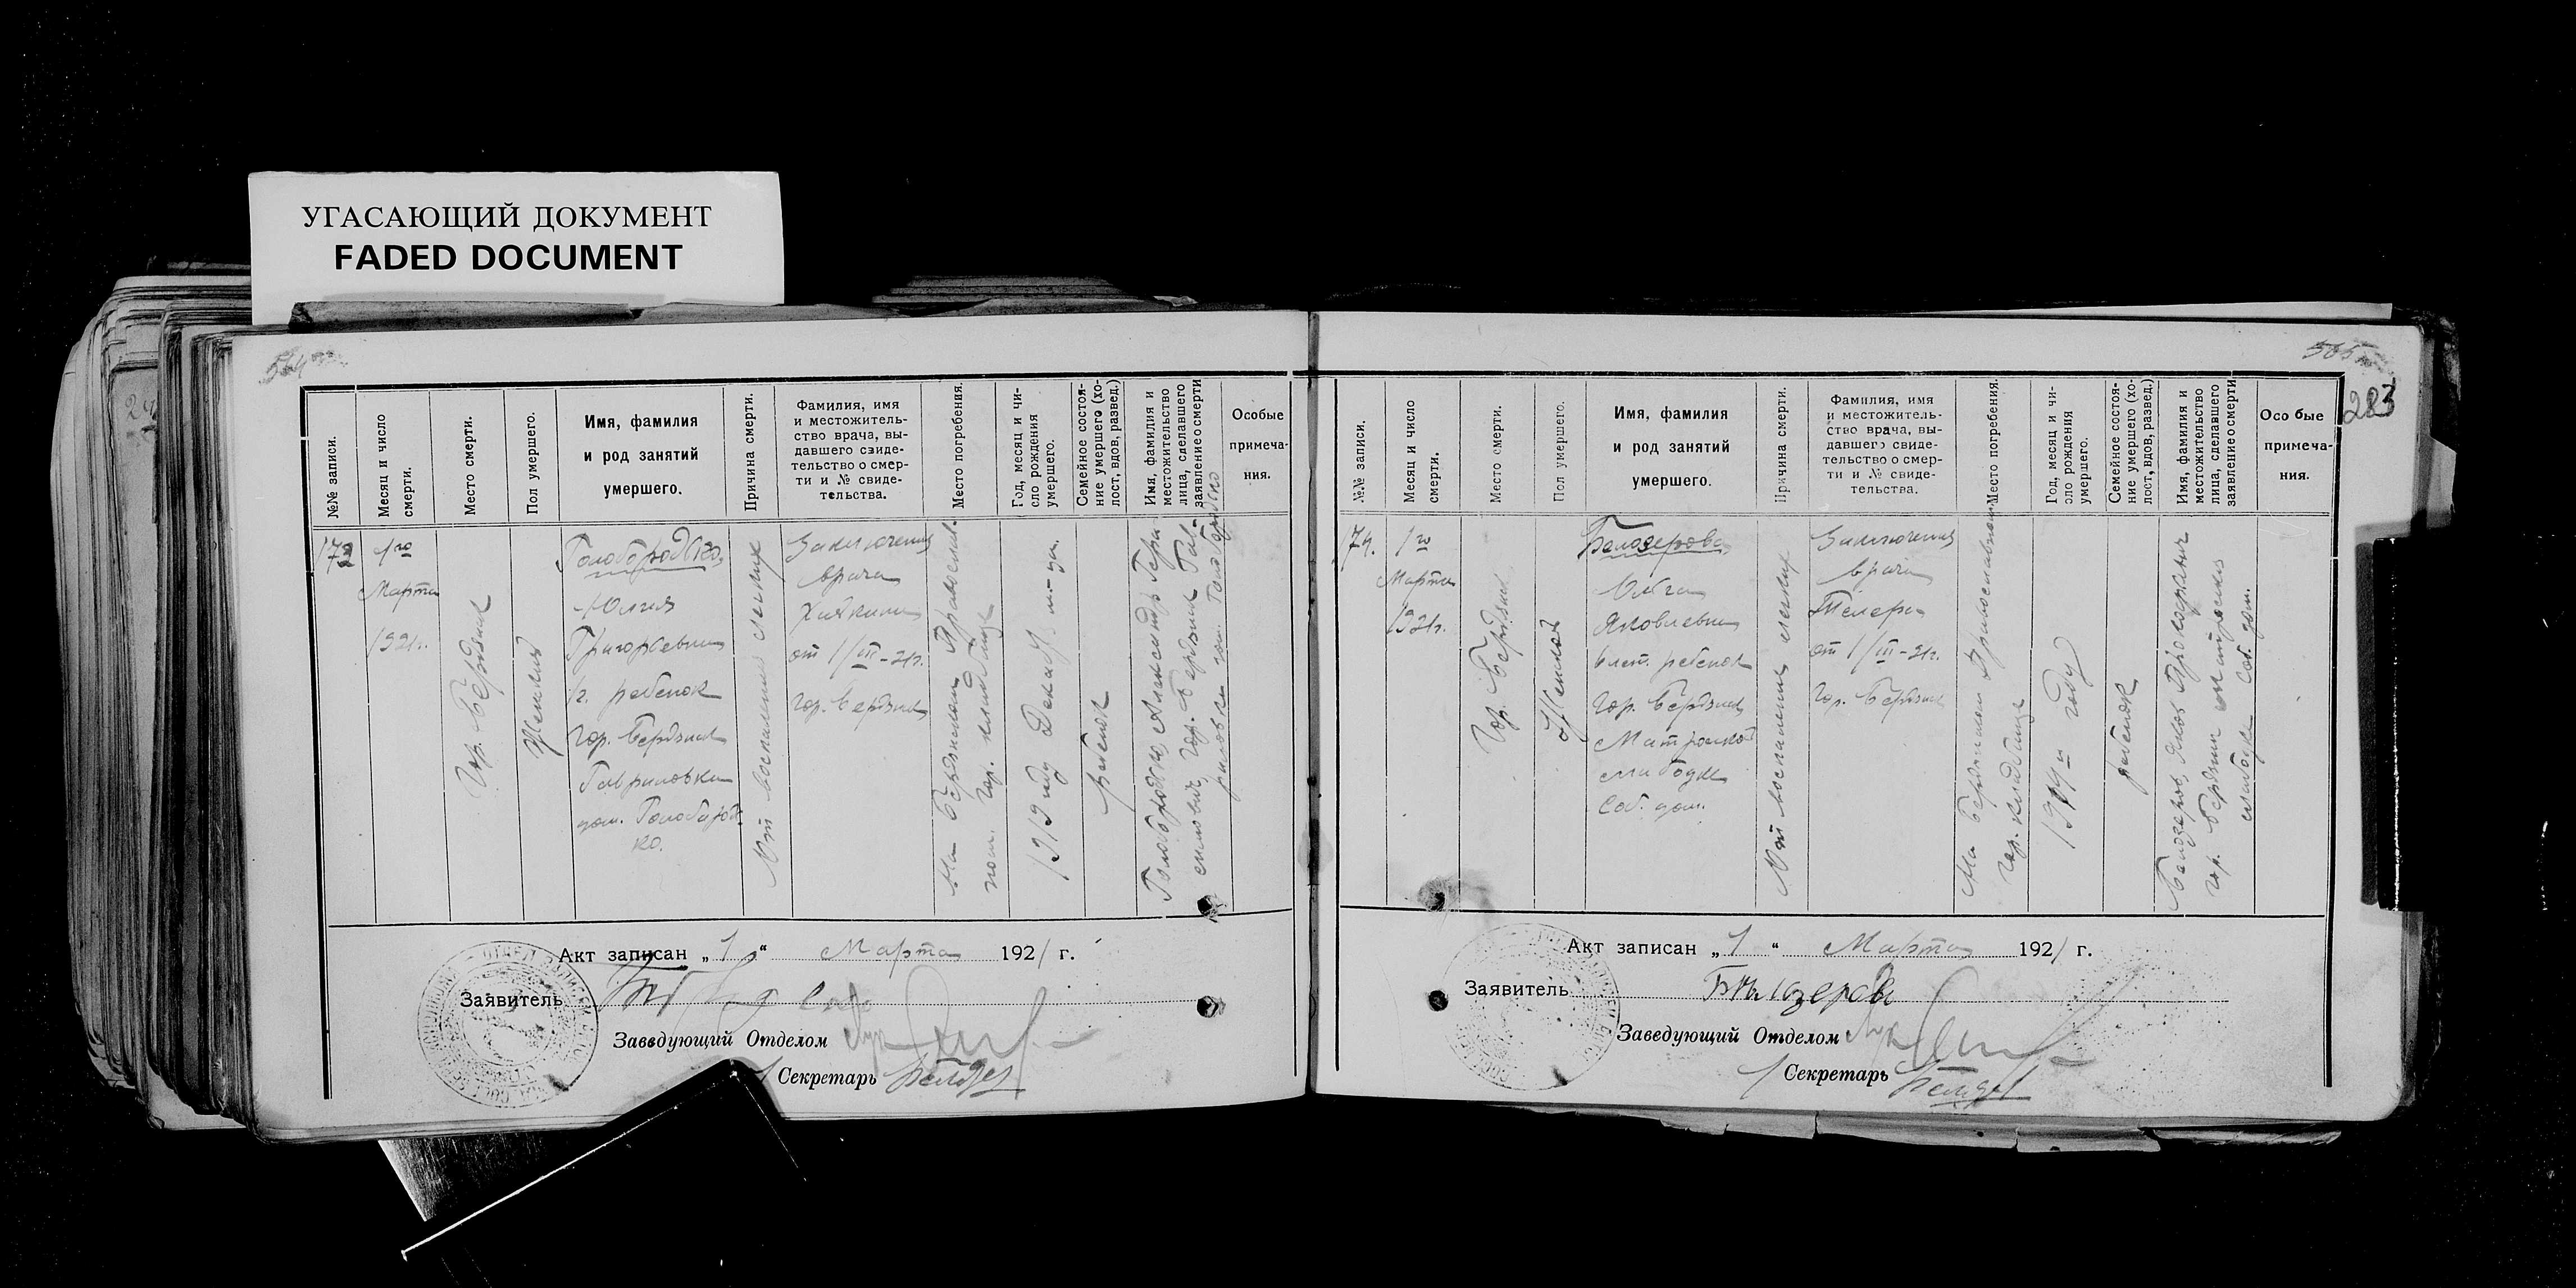 УГАСАЮЩИЙ ДОКУМЕНТ
FADED DOCUMENT
564
№№ записи.
Месяц и число
смерти.
Место смерти.
Пол умершего.
Имя, фамилия
и род занятий
умершего.
Причина смерти.
Фамилия, имя
и местожитель-
ство врача, вы-
давшего свиде-
тельство о смер-
ти и № свиде-
тельства.
Место погребения.
Год, месяц и чи-
сло рождения
умершего.
Семейное состоя-
ние умершего (хо-
лост, вдов, развед.)
Имя, фамилия и
местожительство
лица, сделавшего
заявление о смерти
Особые
примеча-
ния.
173
1го
Марта
1921г.
Гор. Бердянск
Женский
Голобородько
Юлия
Григорьевна
1г. ребенок
Гор. Бердянск
Гавриловка
дом. Голобород-
ко.
От воспаления легких
Заключения
врача
от 1/III-21г.
гор. Бердянск
На Бердянском Православ-
ном гор. кладбище
1919 году Декабр. м-ца.
ребенок
Голобородько, Александр
гор. Бердянск Гав-
риловка дом. Голобородько
Акт записан „1“ Марта 1921 г.
Заявитель
Заведующий Отделом
Секретарь
565
283
№№ записи.
Месяц и число
смерти.
Место смерти.
Пол умершего.
Имя, фамилия
и род занятий
умершего.
Причина смерти.
Фамилия, имя
и местожитель-
ство врача, вы-
давшего свиде-
тельство о смер-
ти и № свиде-
тельства.
Место погребения.
Год, месяц и чи-
сло рождения
умершего.
Семейное состоя-
ние умершего (хо-
лост, вдов, развед.)
Имя, фамилия и
местожительство
лица, сделавшего
заявление о смерти
Особые
примеча-
ния.
174.
1го
Марта
1921г.
Гор. Бердянск
Женский
Белозерова
Ольга
Яковлевна
лет. ребенок
Гор. Бердянск
Матросской
слободке
Соб. дом.
От воспаления легких
Заключения
врача
от 1/III-21г.
Гор. Бердянск
На Бердянском Православном
гор. кладбище
1919 году
ребенок
Белозеров, Яков
гор. Бердянск Матросская
слободка Соб. дом.
Акт записан „1“ Марта 1921 г.
Заявитель Белозеров
Заведующий Отделом
Секретарь